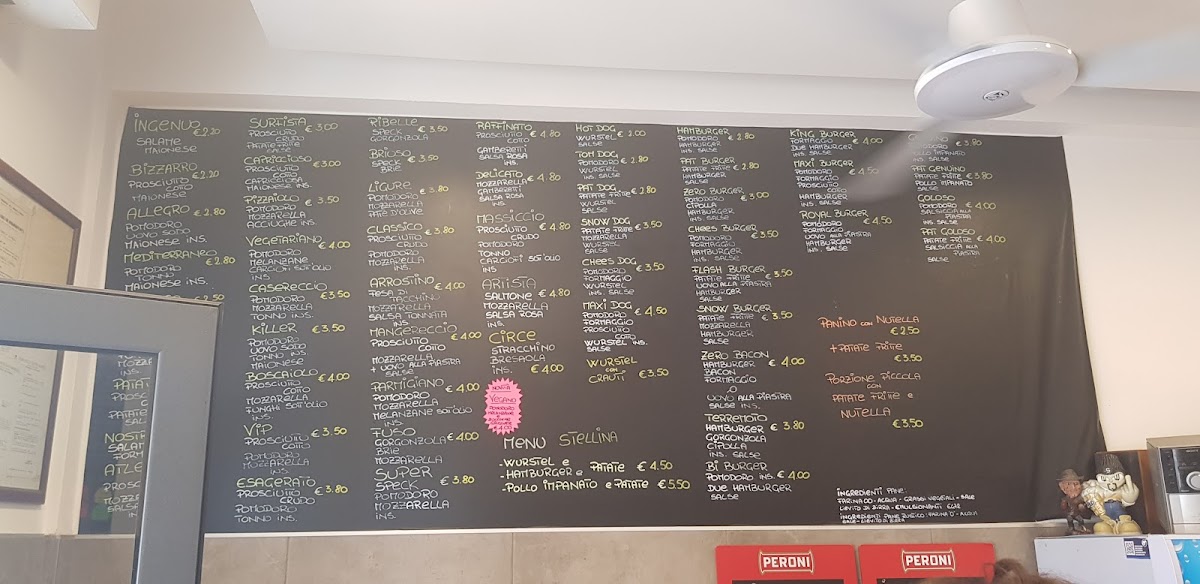 INGENUO € 2.20
SALAME
MAIONESE
BIZZARRO € 2.20
PROSCIUTTO
COTTO
MAIONESE
ALLEGRO € 2.80
POMODORO
UOVO SODO
MAIONESE INS.
MEDITERRANEO € 2.80
POMODORO
TONNO
MAIONESE INS.
€ 2.50
MOZZA
PATA
NOSTR
SALAM
FORM
ATLE
PROSC
MOZZ
SURFISTA € 3.00
PROSCIUTTO
CRUDO
PATATE FRITTE
MAIONESE
CAPRICCIOSO € 3.00
PROSCIUTTO
COTTO
CAPRICCIOSA
MAIONESE INS.
PIZZAIOLO € 3.50
POMODORO
MOZZARELLA
ACCIUGHE INS.
VEGETARIANO € 4.00
POMODORO
MELANZANE
CARCIOFI SOTT'OLIO
INS.
CASERECCIO € 3.50
POMODORO
MOZZARELLA
TONNO INS.
KILLER € 3.50
POMODORO
UOVO SODO
TONNO INS.
MAIONESE
BOSCAIOLO € 4.00
PROSCIUTTO
COTTO
MOZZARELLA
FUNGHI SOTT'OLIO
INS.
VIP € 3.50
PROSCIUTTO
COTTO
POMODORO
MOZZARELLA
INS.
ESAGERATO € 3.80
PROSCIUTTO
CRUDO
POMODORO
TONNO INS.
RIBELLE € 3.50
SPECK
GORGONZOLA
BRIOSO € 3.50
SPECK
BRIE
LIGURE € 3.80
POMODORO
MOZZARELLA
PATE' D'OLIVE
CLASSICO € 3.80
PROSCIUTTO
CRUDO
POMODORO
MOZZARELLA
INS.
ARROSTINO € 4.00
FESA DI
TACCHINO
MOZZARELLA
SALSA TONNATA
INS.
MANGERECCIO € 4.00
PROSCIUTTO
COTTO
MOZZARELLA
+ UOVO ALLA PIASTRA
SALSE
PARMIGIANO € 4.00
POMODORO
MOZZARELLA
MELANZANE SOTT'OLIO
INS.
FUSO € 4.00
GORGONZOLA
BRIE
MOZZARELLA
SUPER € 3.80
SPECK
POMODORO
MOZZARELLA
INS.
RAFFINATO € 4.80
PROSCIUTTO
COTTO
GAMBERETTI
SALSA ROSA
INS.
DELICATO € 4.80
MOZZARELLA
GAMBERETTI
SALSA ROSA
INS.
MASSICCIO € 4.80
PROSCIUTTO
CRUDO
POMODORO
TONNO
CARCIOFI SOTT'OLIO
INS
ARTISTA
SALMONE € 4.80
MOZZARELLA
SALSA ROSA
INS.
CIRCE
STRACCHINO
BRESAOLA
INS. € 4.00
NOVITÀ
VEGANO
POMODORO
MENU STELLINA
- WURSTEL e
- HAMBURGER e PATATE € 4.50
- POLLO IMPANATO e PATATE € 5.50
HOT DOG € 2.00
WURSTEL
INS. SALSE
TOM DOG € 2.80
POMODORO
WURSTEL
INS. SALSE
PAT DOG € 2.80
PATATE FRITTE
WURSTEL
SALSE
SNOW DOG € 3.50
PATATE FRITTE
MOZZARELLA
WURSTEL
SALSE
CHEES DOG € 3.50
POMODORO
FORMAGGIO
WURSTEL
INS. SALSE
MAXI DOG € 4.50
POMODORO
FORMAGGIO
PROSCIUTTO
COTTO
WURSTEL INS.
SALSE
WURSTEL
CON
CRAUTI € 3.50
HAMBURGER € 2.80
POMODORO
HAMBURGER
INS. SALSE
PAT BURGER € 2.80
PATATE FRITTE
HAMBURGER
SALSE
ZERO BURGER € 3.00
POMODORO
CIPOLLA
HAMBURGER
INS. SALSE
CHEES BURGER € 3.50
POMODORO
FORMAGGIO
HAMBURGER
INS. SALSE
FLASH BURGER € 3.50
PATATE FRITTE
UOVO ALLA PIASTRA
HAMBURGER
SALSE
SNOW BURGER € 3.50
PATATE FRITTE
MOZZARELLA
HAMBURGER
SALSE
ZERO BACON € 4.00
HAMBURGER
BACON
FORMAGGIO
O
UOVO ALLA PIASTRA
SALSE INS.
TERREMOTO
HAMBURGER € 3.80
GORGONZOLA
CIPOLLA
INS. SALSE
BI BURGER
POMODORO INS. € 4.00
DUE HAMBURGER
SALSE
KING BURGER € 4.00
FORMAGGIO
DUE HAMBURGER
INS. SALSE
MAXI BURGER € 4.50
POMODORO
FORMAGGIO
PROSCIUTTO
COTTO
HAMBURGER
INS. SALSE
ROYAL BURGER € 4.50
POMODORO
FORMAGGIO
UOVO ALLA PIASTRA
HAMBURGER
INS. SALSE
€ 3.80
POMODORO
POLLO IMPANATO
INS. SALSE
PAT GENUINO € 3.80
PATATE FRITTE
POLLO IMPANATO
SALSE
GOLOSO € 4.00
POMODORO
SALSICCIA ALLA
PIASTRA
INS. SALSE
PAT GOLOSO € 4.00
PATATE FRITTE
SALSICCIA ALLA
PIASTRA
SALSE
PANINO CON NUTELLA
€ 2.50
+ PATATE FRITTE
€ 3.50
PORZIONE PICCOLA
CON
PATATE FRITTE e
NUTELLA
€ 3.50
INGREDIENTI PANE:
FARINA OO - ACQUA - GRASSI VEGETALI - SALE
LIEVITO DI BIRRA - EMULSIONANTI E472
INGREDIENTI PANE RUSTICO: FARINA "0" - ACQUA
SALE - LIEVITO DI BIRRA
PERONI
PERONI